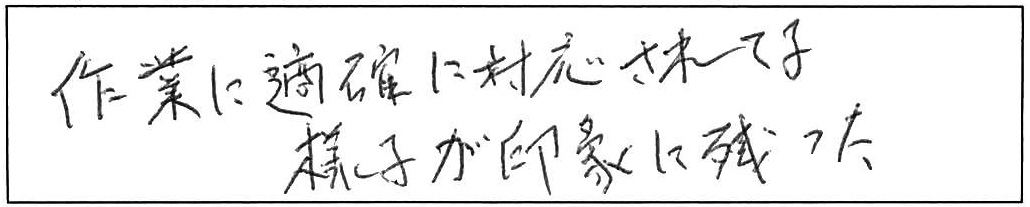 作業に適確に対応されてる
様子が印象に残った